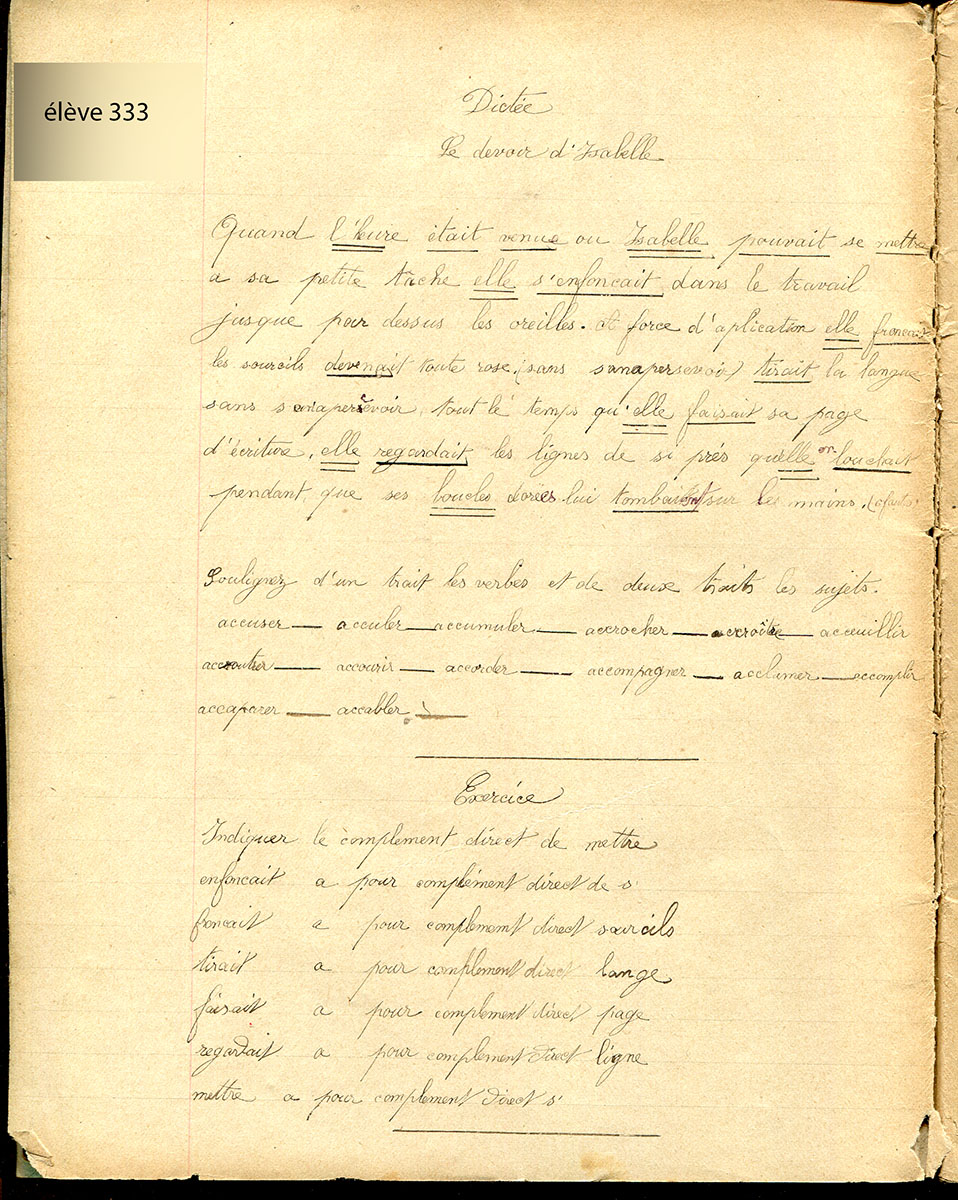 élève 333
Dictée
Le devoir d'Isabelle
Quand l'heure était venue ou Isabelle pouvait se mettre
a sa petite tâche elle s'enfoncait dans le travail
jusque par dessus les oreilles. A force d'aplication elle froncait
les sourcils devenait toute rose (sans sanapersevoir) tirait la langue
sans s'enapersevoir, tout le temps qu'elle faisait sa page
d'écriture, elle regardait les lignes de si prés qu'elle en louchait
pendant que ses boucles dorées lui tombaient sur les mains.
Soulignez d'un trait les verbes et de deux traits les sujets.
accuser — acculer — accumuler — accrocher — accroître — acceuillir
accoutrer — accourir — accorder — accompagner — acclamer — accomplir
accaparer — accabler
Exercice
Indiquer le complement direct de mettre
enfoncait a pour complément direct de s'
froncait a pour complement direct sourcils
tirait a pour complement direct lange
faisait a pour complement direct page
regardait a pour complement direct ligne
mettre a pour complement direct s'